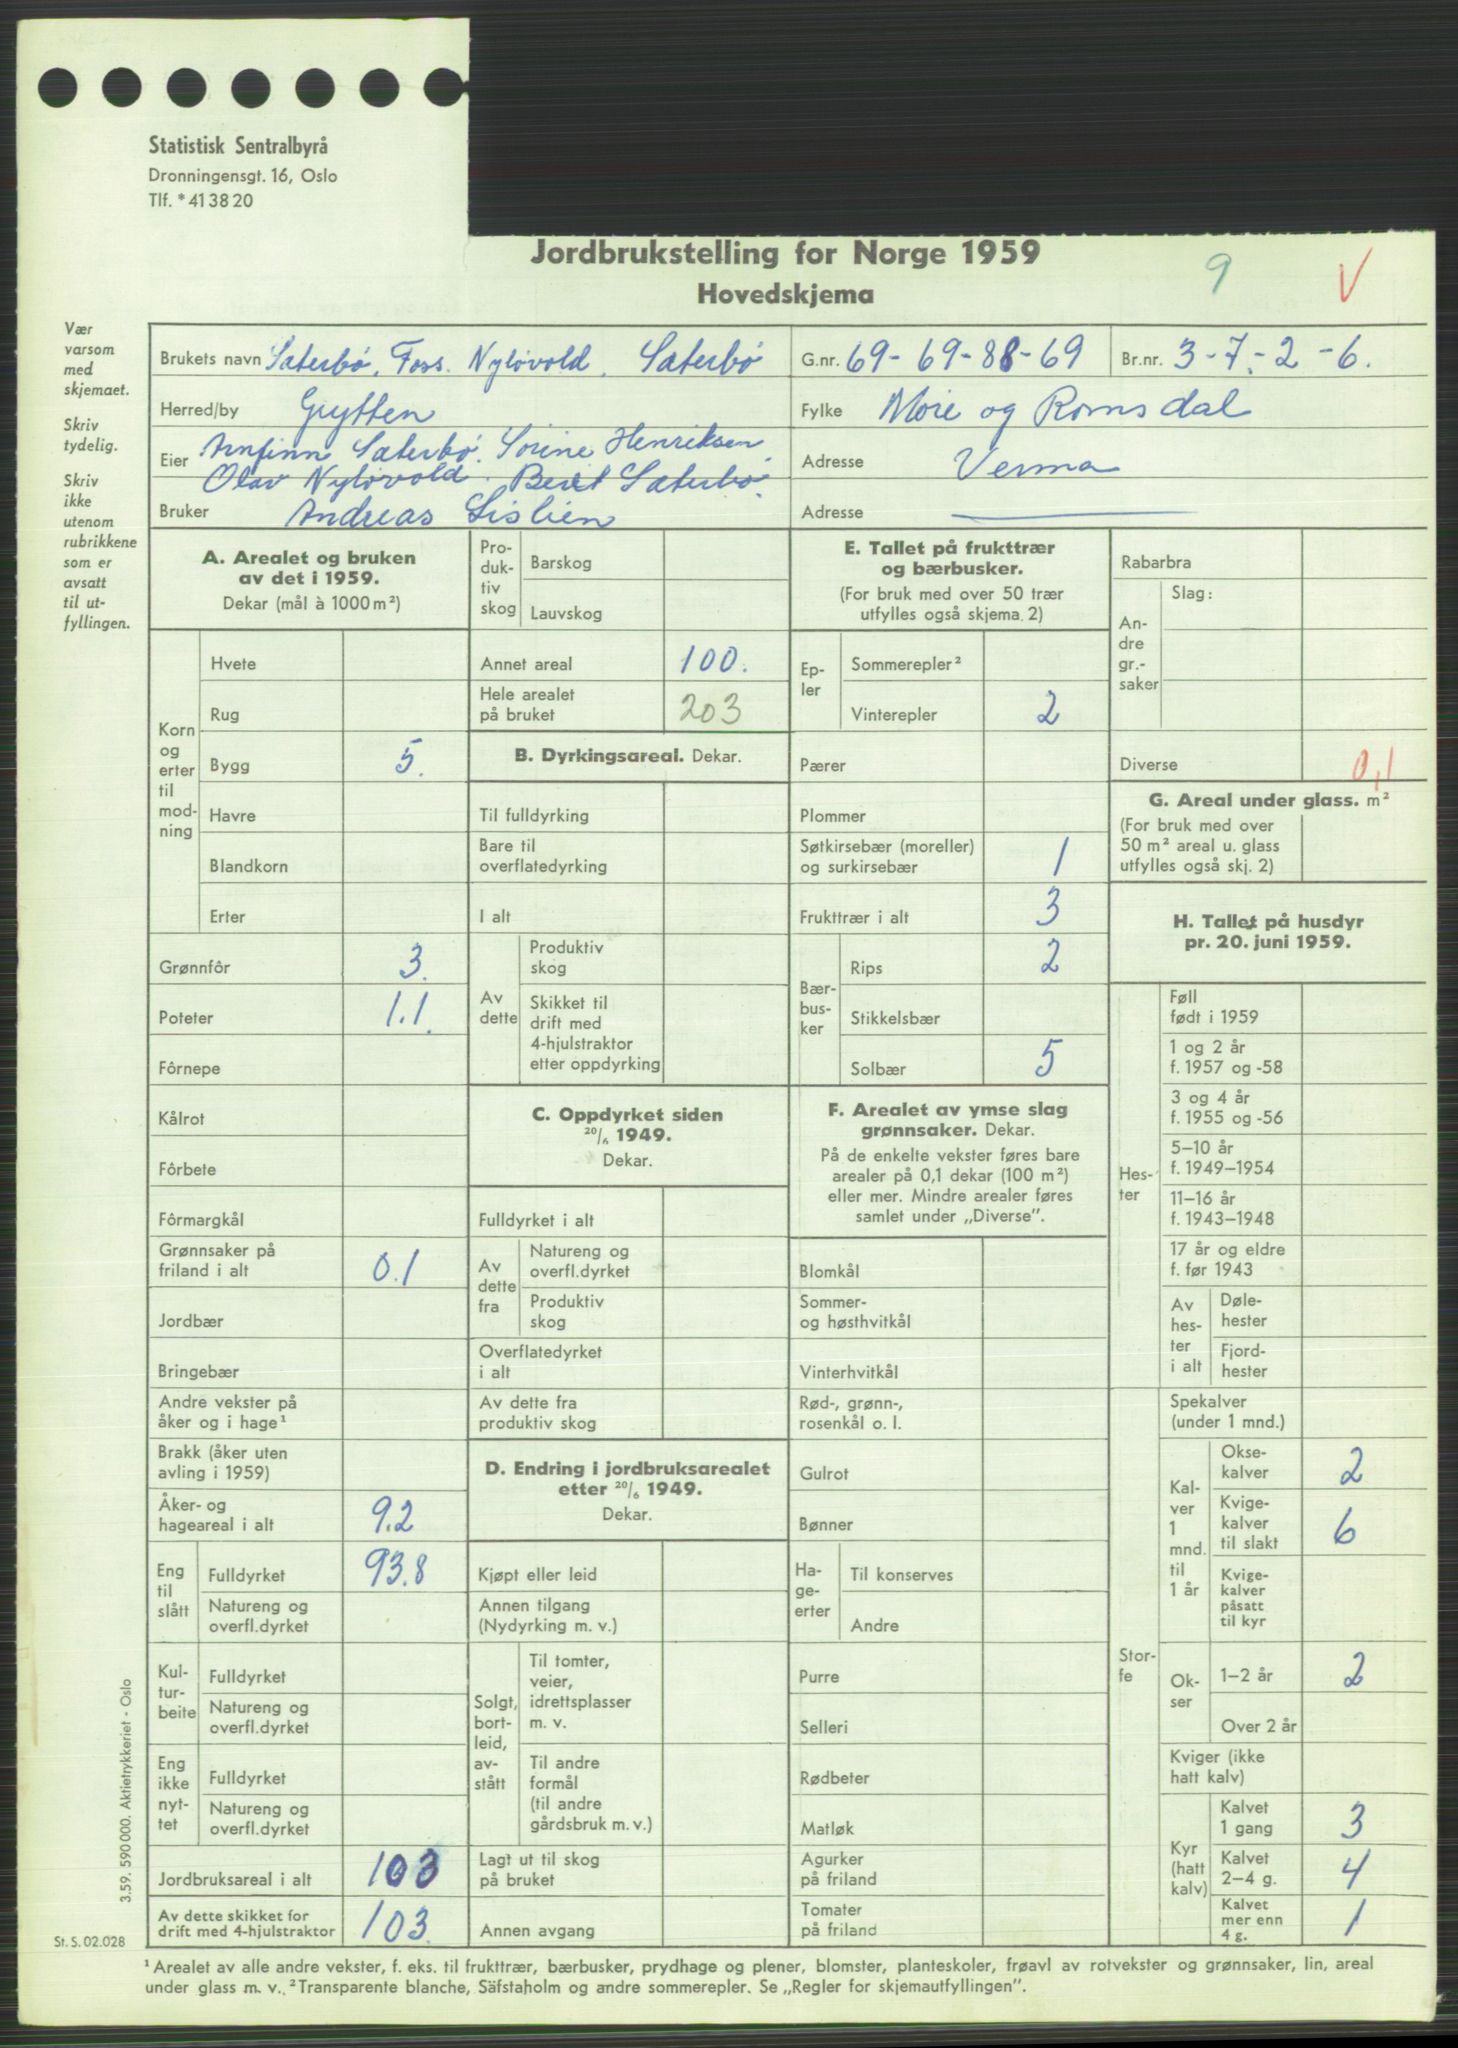 Statistisk Sentralbyrå
Dronningensgt. 16, Oslo
Tlf. *41 38 20
Jordbrukstelling for Norge 1959
Hovedskjema
9
V
Vær
varsom
med
skjemaet.
Skriv
tydelig.
Skriv
ikke
utenom
rubrikkene
som er
avsatt
til ut-
fyllingen.
Brukets navn Sæterbø. Foss. Nyløvold. Sæterbø
G.nr. 69-69-88-69
Br.nr. 3-7-2-6.
Herred/by Grytten
Fylke Møre og Romsdal
Eier Arnfinn Sæterbø. Sorine Henriksen
Olav Nyløvold. Berit Sæterbø.
Adresse Verma
Bruker Andreas Lislien
Adresse
A. Arealet og bruken
av det i 1959.
Dekar (mål à 1000 m²)
Korn
og
erter
til
mod-
ning
Hvete
Rug
Bygg 5.
Havre
Blandkorn
Erter
Grønnfôr 3.
Poteter 1.1.
Fôrnepe
Kålrot
Fôrbete
Fôrmargkål
Grønnsaker på
friland i alt 0.1
Jordbær
Bringebær
Andre vekster på
åker og i hage¹
Brakk (åker uten
avling i 1959)
Åker- og
hageareal i alt 9.2
Eng
til
slått
Fulldyrket 93.8
Natureng og
overfl.dyrket
Kul-
tur-
beite
Fulldyrket
Natureng og
overfl.dyrket
Eng
ikke
nyt-
tet
Fulldyrket
Natureng og
overfl.dyrket
Jordbruksareal i alt 103
Av dette skikket for
drift med 4-hjulstraktor 103.
Pro-
duk-
tiv
skog
Barskog
Lauvskog
Annet areal 100.
Hele arealet
på bruket 203
B. Dyrkingsareal. Dekar.
Til fulldyrking
Bare til
overflatedyrking
I alt
Av
dette
Produktiv
skog
Skikket til
drift med
4-hjulstraktor
etter oppdyrking
C. Oppdyrket siden
20/6 1949.
Dekar.
Fulldyrket i alt
Av
dette
fra
Natureng og
overfl.dyrket
Produktiv
skog
Overflatedyrket
i alt
Av dette fra
produktiv skog
D. Endring i jordbruksarealet
etter 20/6 1949.
Dekar.
Kjøpt eller leid
Annen tilgang
(Nydyrking m. v.)
Solgt,
bort-
leid,
av-
stått
Til tomter,
veier,
idrettsplasser
m. v.
Til andre
formål
(til andre
gårdsbruk m. v.)
Lagt ut til skog
på bruket
Annen avgang
E. Tallet på frukttrær
og bærbusker.
(For bruk med over 50 trær
utfylles også skjema 2)
Ep-
ler
Sommerepler²
Vinterepler 2
Pærer
Plommer
Søtkirsebær (moreller)
og surkirsebær 1
Frukttrær i alt 3
Bær-
bus-
ker
Rips 2
Stikkelsbær
Solbær 5
F. Arealet av ymse slag
grønnsaker. Dekar.
På de enkelte vekster føres bare
arealer på 0,1 dekar (100 m²)
eller mer. Mindre arealer føres
samlet under „Diverse”.
Blomkål
Sommer-
og høsthvitkål
Vinterhvitkål
Rød-, grønn-,
rosenkål o. l.
Gulrot
Bønner
Ha-
ge-
erter
Til konserves
Andre
Purre
Selleri
Rødbeter
Matløk
Agurker
på friland
Tomater
på friland
Rabarbra
An-
dre
gr.-
saker
Slag:
Diverse 0,1
G. Areal under glass. m²
(For bruk med over
50 m² areal u. glass
utfylles også skj. 2)
H. Tallet på husdyr
pr. 20. juni 1959.
Hes-
ter
Føll
født i 1959
1 og 2 år
f. 1957 og -58
3 og 4 år
f. 1955 og -56
5–10 år
f. 1949–1954
11–16 år
f. 1943–1948
17 år og eldre
f. før 1943
Av
hes-
ter
i alt
Døle-
hester
Fjord-
hester
Stor-
fe
Spekalver
(under 1 mnd.)
Kal-
ver
1
mnd.
til
1 år
Okse-
kalver 2
Kvige-
kalver
til slakt 6
Kvige-
kalver
påsatt
til kyr
Ok-
ser
1–2 år 2
Over 2 år
Kviger (ikke
hatt kalv)
Kyr
(hatt
kalv)
Kalvet
1 gang 3
Kalvet
2–4 g. 4
Kalvet
mer enn
4 g. 1
3.59. 590 000. Aktietrykkeriet - Oslo
St. S. 02.028
¹ Arealet av alle andre vekster, f. eks. til frukttrær, bærbusker, prydhage og plener, blomster, planteskoler, frøavl av rotvekster og grønnsaker, lin, areal
under glass m. v. ² Transparente blanche, Säfstaholm og andre sommerepler. Se „Regler for skjemautfyllingen”.